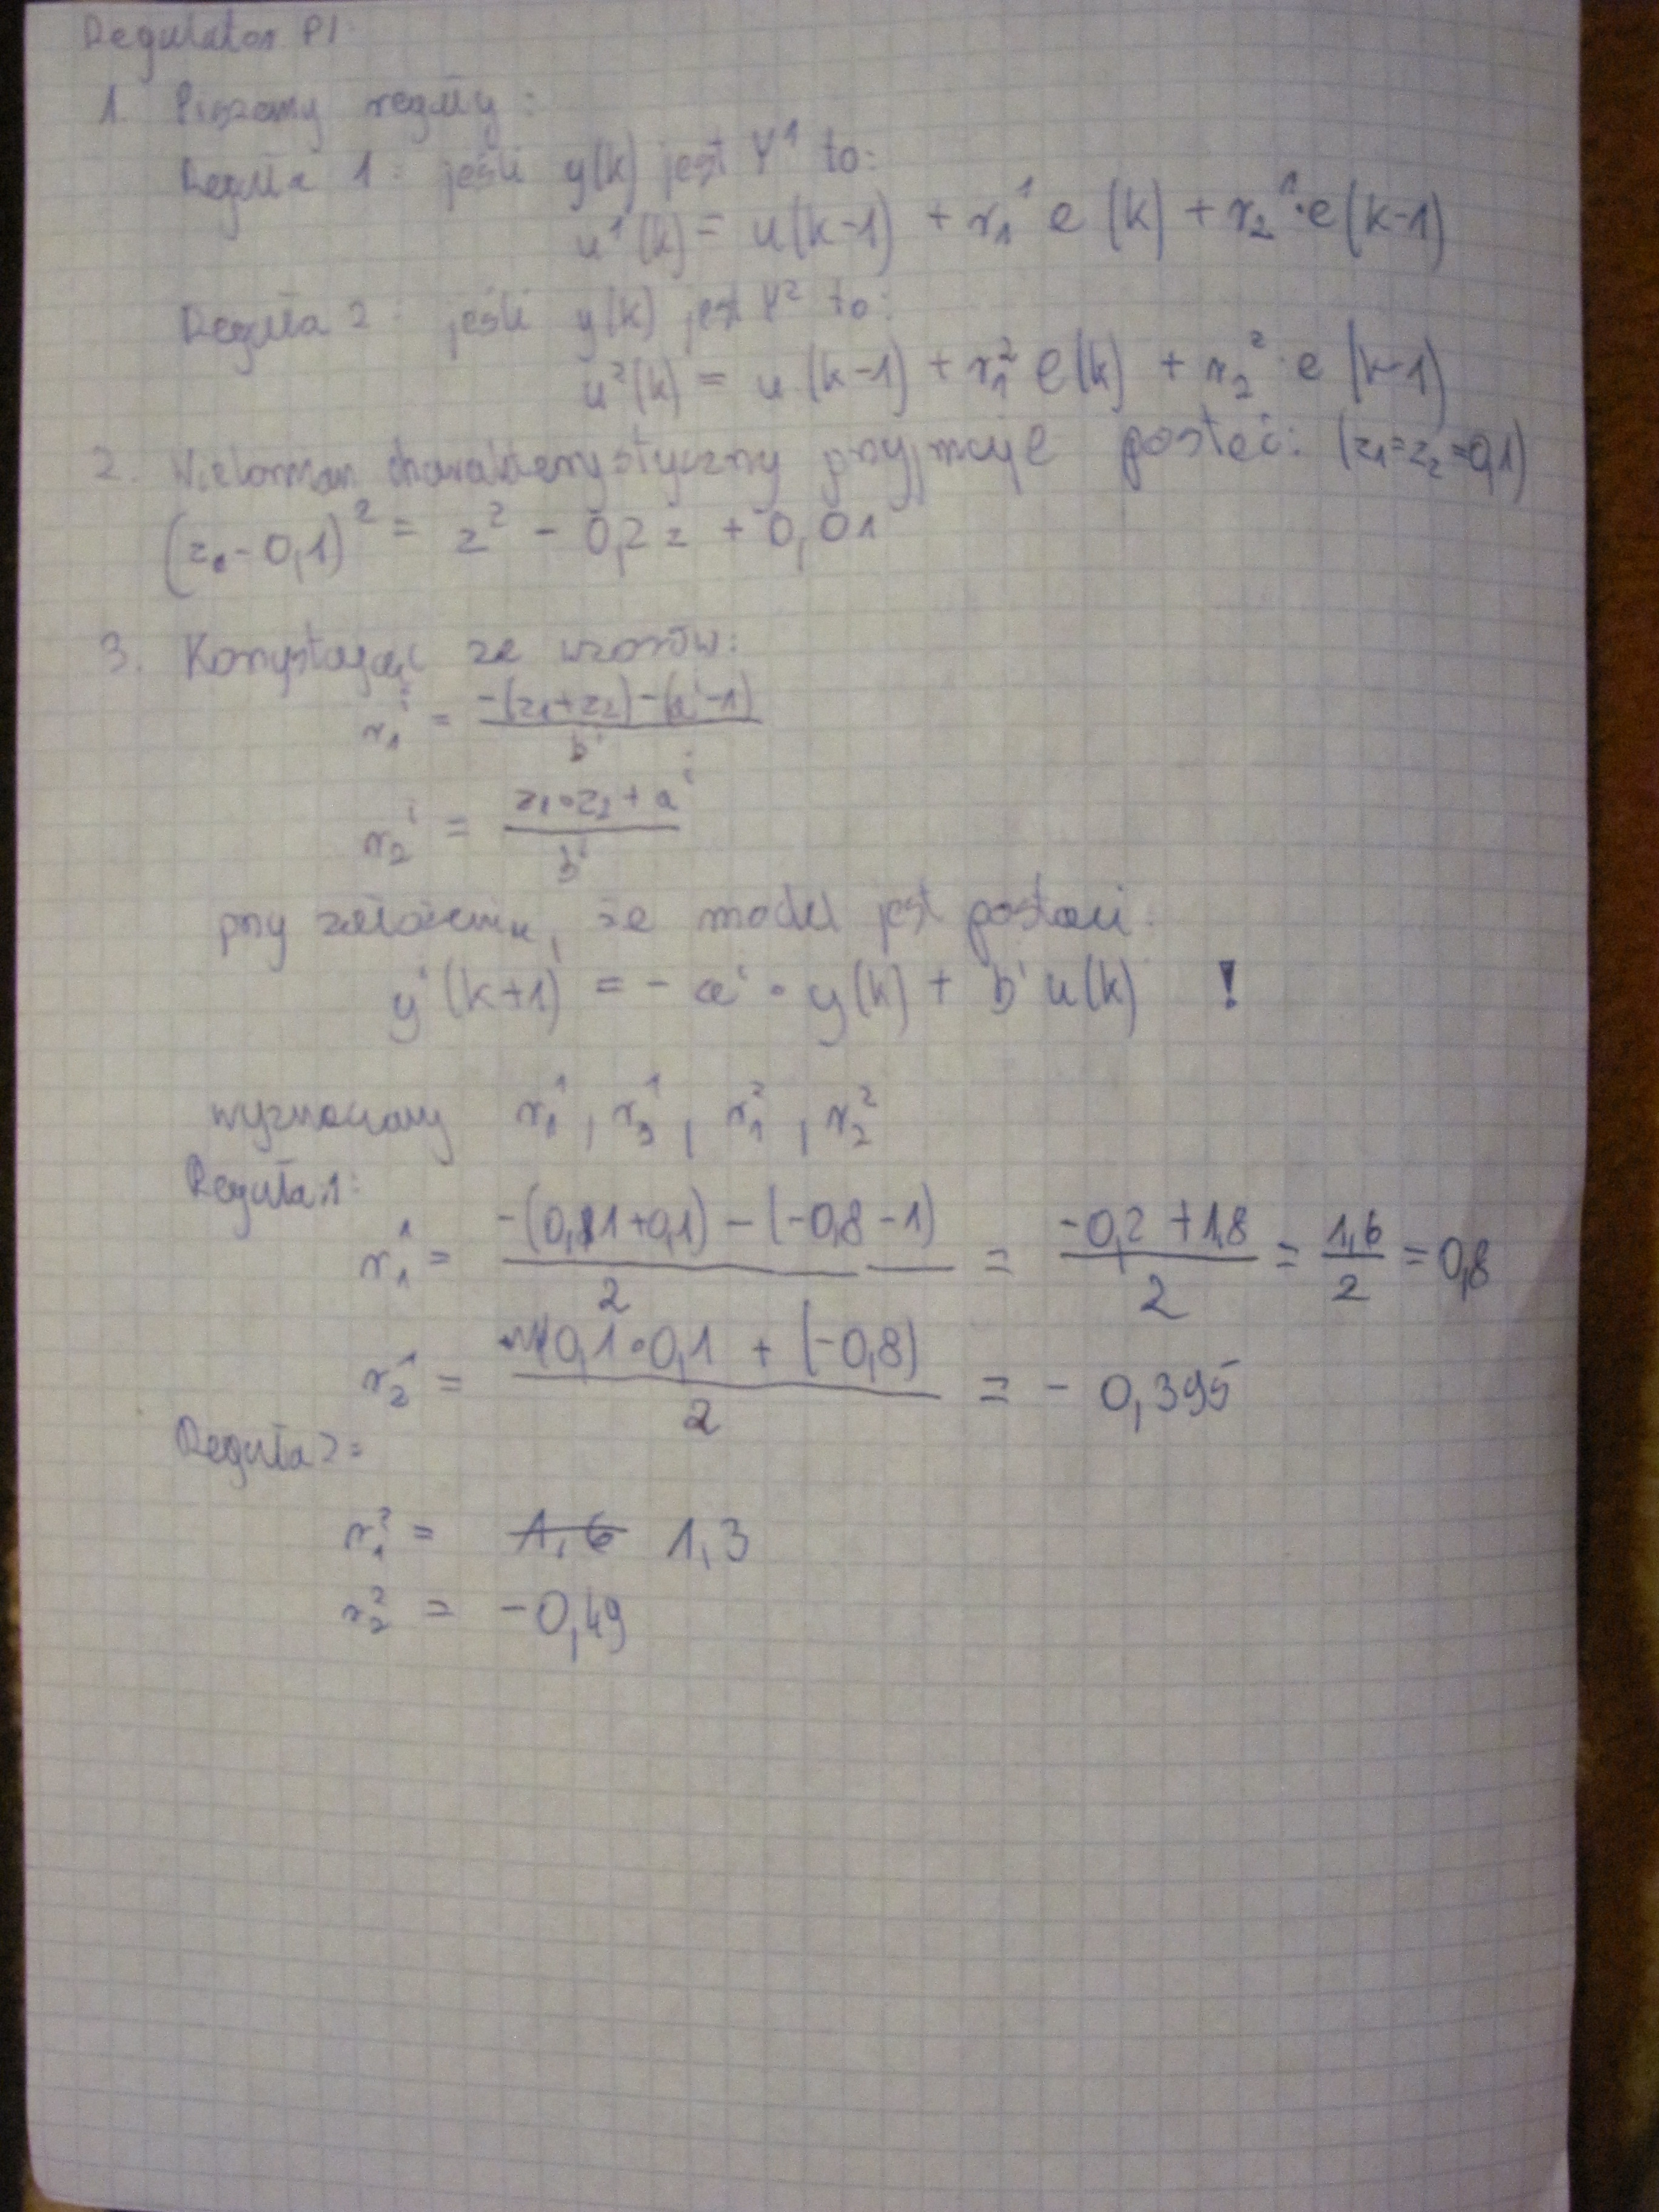 Regulator PI:
1. Piszemy reguły:
Reguła 1: jeśli y(k) jest Y¹ to:
u¹(k) = u(k-1) + r₁¹ e(k) + r₂¹·e(k-1)
Reguła 2: jeśli y(k) jest Y² to:
u²(k) = u(k-1) + r₁² e(k) + r₂²·e(k-1)
2. Wielomian charakterystyczny przyjmuje postać: (z₁=z₂=0,1)
(z-0,1)² = z² - 0,2z + 0,01
3. Korzystając ze wzorów:
r₁ⁱ = (-(z₁+z₂)-(aⁱ-1))/bⁱ
r₂ⁱ = (z₁·z₂+aⁱ)/bⁱ
przy założeniu, że model jest postaci:
yⁱ(k+1) = -aⁱ·y(k) + bⁱu(k) !
wyznaczamy r₁¹, r₂¹, r₁², r₂²
Reguła 1:
r₁¹ = (-(0,1+0,1)-(-0,8-1))/2 = (-0,2+1,8)/2 = 1,6/2 = 0,8
r₂¹ = (0,1·0,1 + (-0,8))/2 = -0,395
Reguła 2:
r₁² = 1,6 1,3
r₂² = -0,49